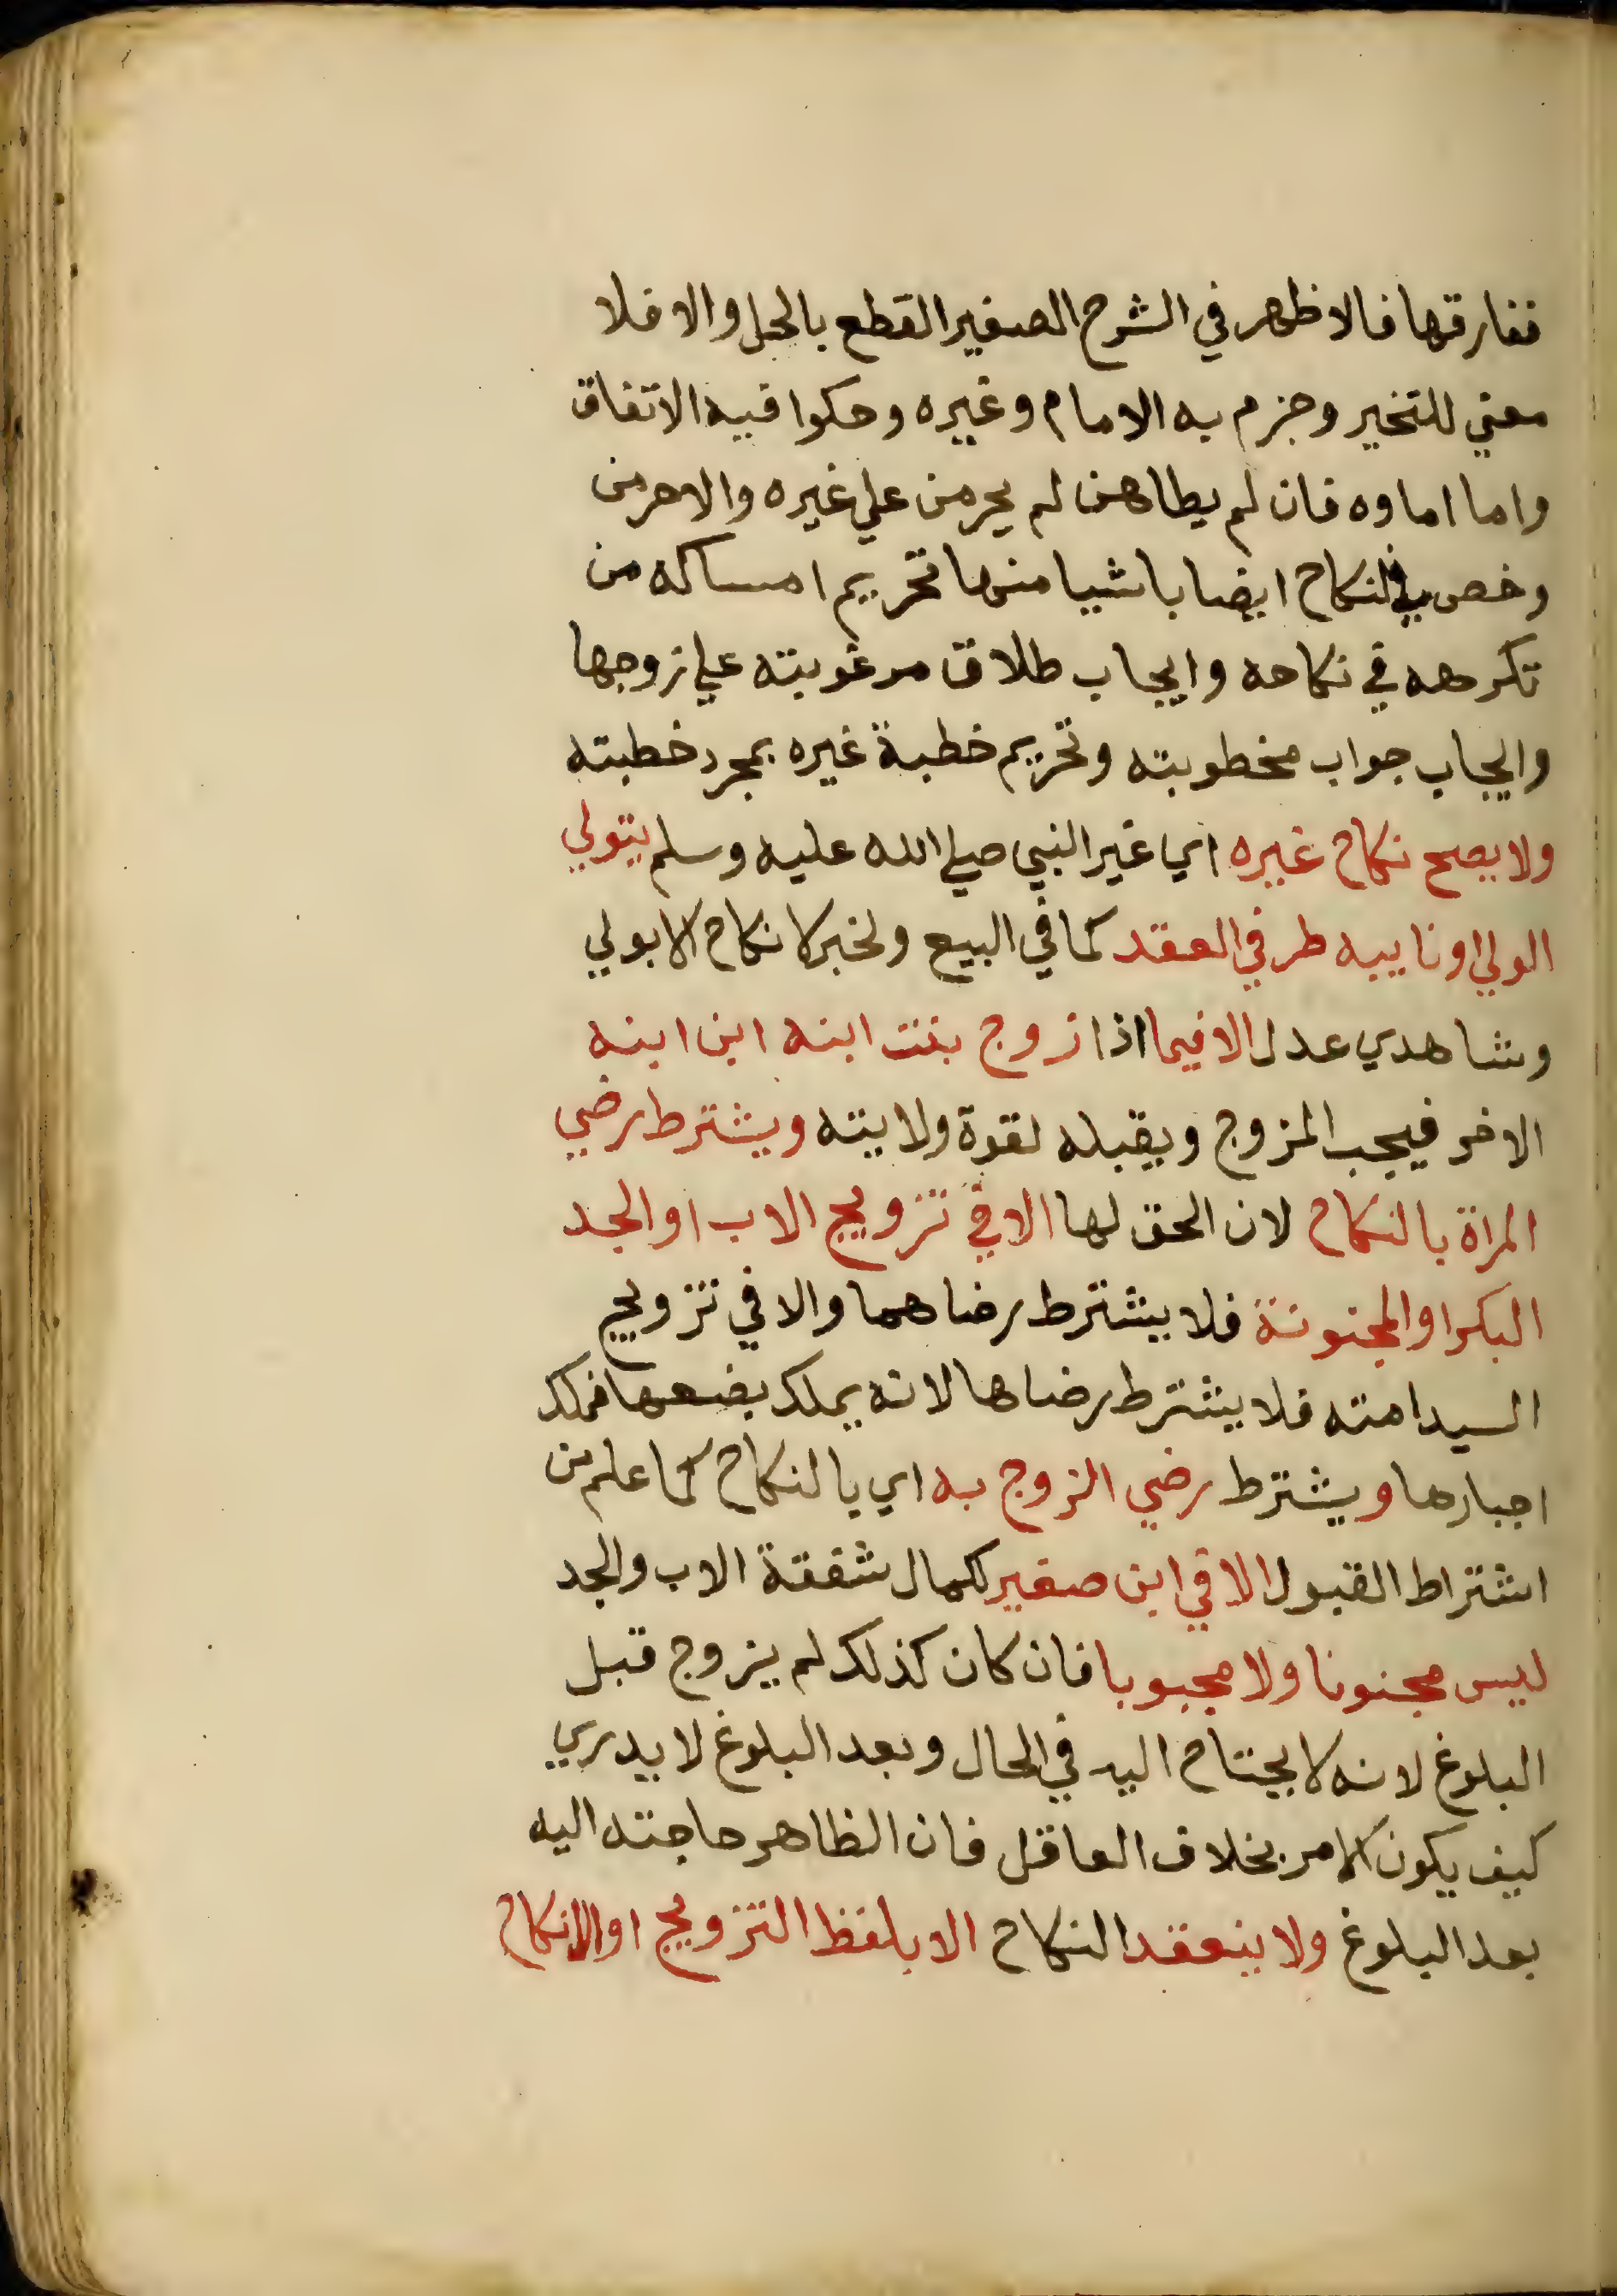 ففارقها فالاظهر في الشرح الصغير القطع بالحل والا فلا
معني للتخير وجزم به الامام وغيره وحكوا فيه الاتفاق
واما اماوه فان لم يطاهن لم يحرمن علي غيره والا حرمن
وخص في النكاح ايضا باشيا منها تحريم امساكه من
تكرهه في نكاحه وايجاب طلاق مرغوبته علي زوجها
وايجاب جواب مخطوبته وتحريم خطبة غيره بمجرد خطبته
ولا يصح نكاح غيره اي غير النبي صلي الله عليه وسلم يتولي
الولي او نايبه طرفي العقد كما في البيع ولخبر لا نكاح الا بولي
وشاهدي عدل الا فيما اذا زوج بنت ابنه ابن ابنه
الاخر فيجب المزوج ويقبله لقوة ولايته ويشترط رضي
المراة بالنكاح لان الحق لها الا في تزويج الاب او الجد
البكر او المجنونة فلا يشترط رضاهما والا في تزويج
السيد امته فلا يشترط رضاها لانه يملك بضعها فملك
اجبارها ويشترط رضي الزوج به اي بالنكاح كما علم من
اشتراط القبول الا في ابن صغير لكمال شفقة الاب والجد
ليس مجنونا ولا مجبوبا فان كان كذلك لم يزوج قبل
البلوغ لانه لا يحتاج اليه في الحال وبعد البلوغ لا يدري
كيف يكون الامر بخلاف العاقل فان الظاهر حاجته اليه
بعد البلوغ ولا ينعقد النكاح الا بلفظ التزويج او الانكاح